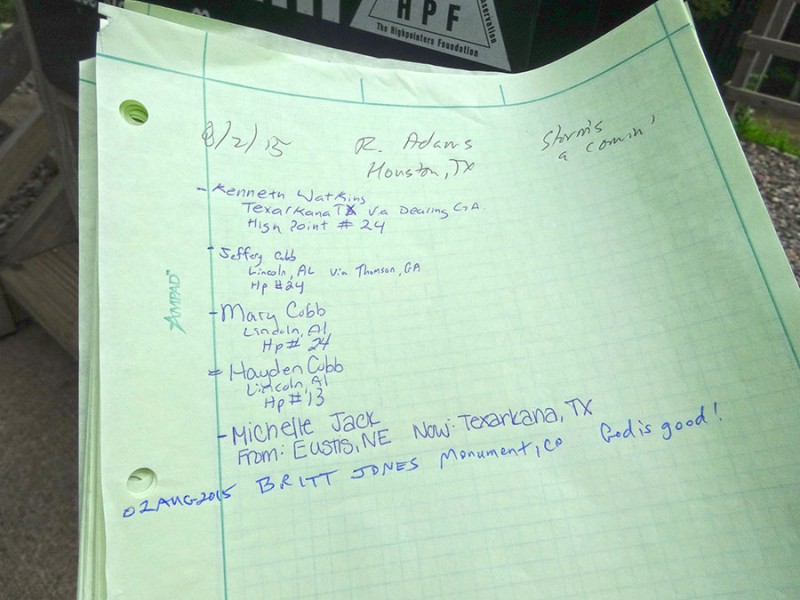 HPF
The Highpointers Foundation
AMPAD™
8/2/15 R. Adams Storm's
Houston, TX a comin'
- Kenneth Watkins
Texarkana TX via Dearing GA.
High Point # 24
- Jeffery Cobb
Lincoln, AL via Thomson, GA
Hp #24
- Mary Cobb
Lincoln, Al,
Hp # 24
- Hayden Cobb
Lincoln, Al
Hp #13
- Michelle Jack
From: Eustis, NE Now: Texarkana, TX
02AUG2015 BRITT JONES Monument, CO God is good!